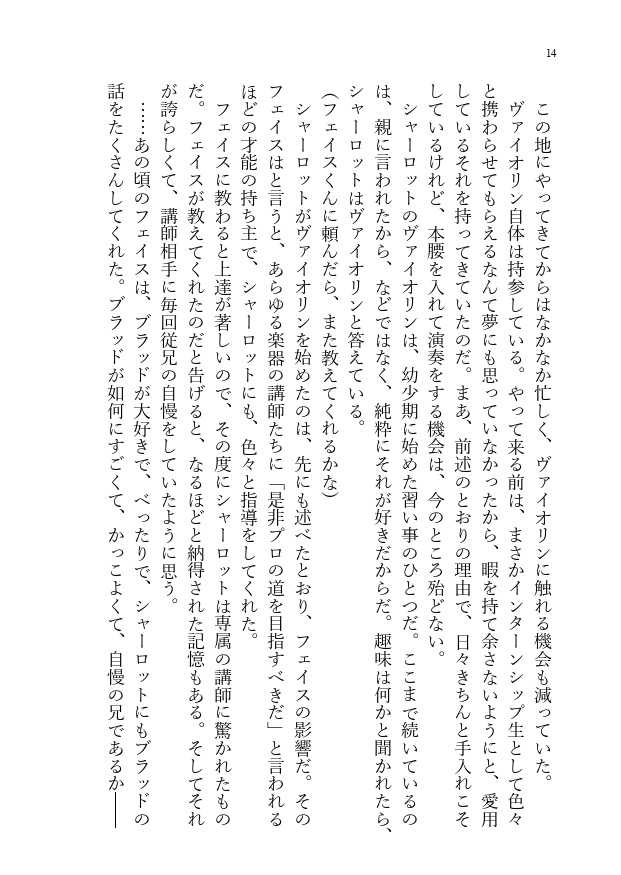 14
この地にやってきてからはなかなか忙しく、ヴァイオリンに触れる機会も減っていた。
ヴァイオリン自体は持参している。やって来る前は、まさかインターンシップ生として色々
と携わらせてもらえるなんて夢にも思っていなかったから、暇を持て余さないようにと、愛用
しているそれを持ってきていたのだ。まあ、前述のとおりの理由で、日々きちんと手入れこそ
しているけれど、本腰を入れて演奏をする機会は、今のところ殆どない。
シャーロットのヴァイオリンは、幼少期に始めた習い事のひとつだ。ここまで続いているの
は、親に言われたから、などではなく、純粋にそれが好きだからだ。趣味は何かと聞かれたら、
シャーロットはヴァイオリンと答えている。
(フェイスくんに頼んだら、また教えてくれるかな)
シャーロットがヴァイオリンを始めたのは、先にも述べたとおり、フェイスの影響だ。その
フェイスはと言うと、あらゆる楽器の講師たちに「是非プロの道を目指すべきだ」と言われる
ほどの才能の持ち主で、シャーロットにも、色々と指導をしてくれた。
フェイスに教わると上達が著しいので、その度にシャーロットは専属の講師に驚かれたもの
だ。フェイスが教えてくれたのだと告げると、なるほどと納得された記憶もある。そしてそれ
が誇らしくて、講師相手に毎回従兄の自慢をしていたように思う。
……あの頃のフェイスは、ブラッドが大好きで、べったりで、シャーロットにもブラッドの
話をたくさんしてくれた。ブラッドが如何にすごくて、かっこよくて、自慢の兄であるか――